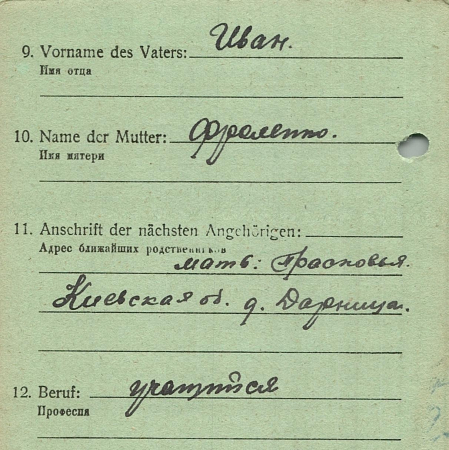 9. Vorname des Vaters: Иван.
Имя отца
10. Name der Mutter: Фроленко.
Имя матери
11. Anschrift der nächsten Angehörigen:
Адрес ближайших родственников
мать: Прасковья.
Киевская об. д. Дарница.
12. Beruf: учащийся
Професия